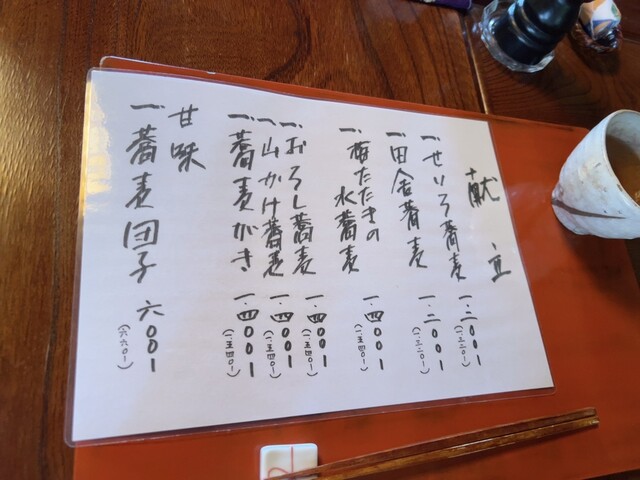 献立
一、せいろ蕎麦 一、二〇〇ー
(一、三二〇ー)
一、田舎蕎麦 一、二〇〇ー
(一、三二〇ー)
一、梅たたきの
水蕎麦 一、四〇〇ー
一、おろし蕎麦 一、四〇〇ー
(一、五四〇ー)
一、山かけ蕎麦 一、四〇〇ー
(一、五四〇ー)
一、蕎麦がき 一、四〇〇ー
(一、五四〇ー)
甘味
一、蕎麦団子 六〇〇ー
(六六〇ー)